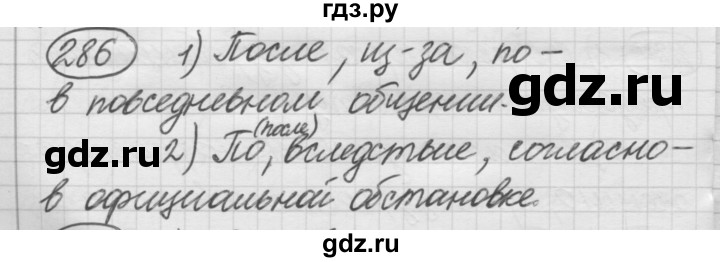 гдз.ру
286 1) После, из-за, по -
в повседневном общении.
(после)
2) По, вследствие, согласно -
в официальной обстановке.
gdz.ru
gdz.ru
gdz.ru
gdz.ru